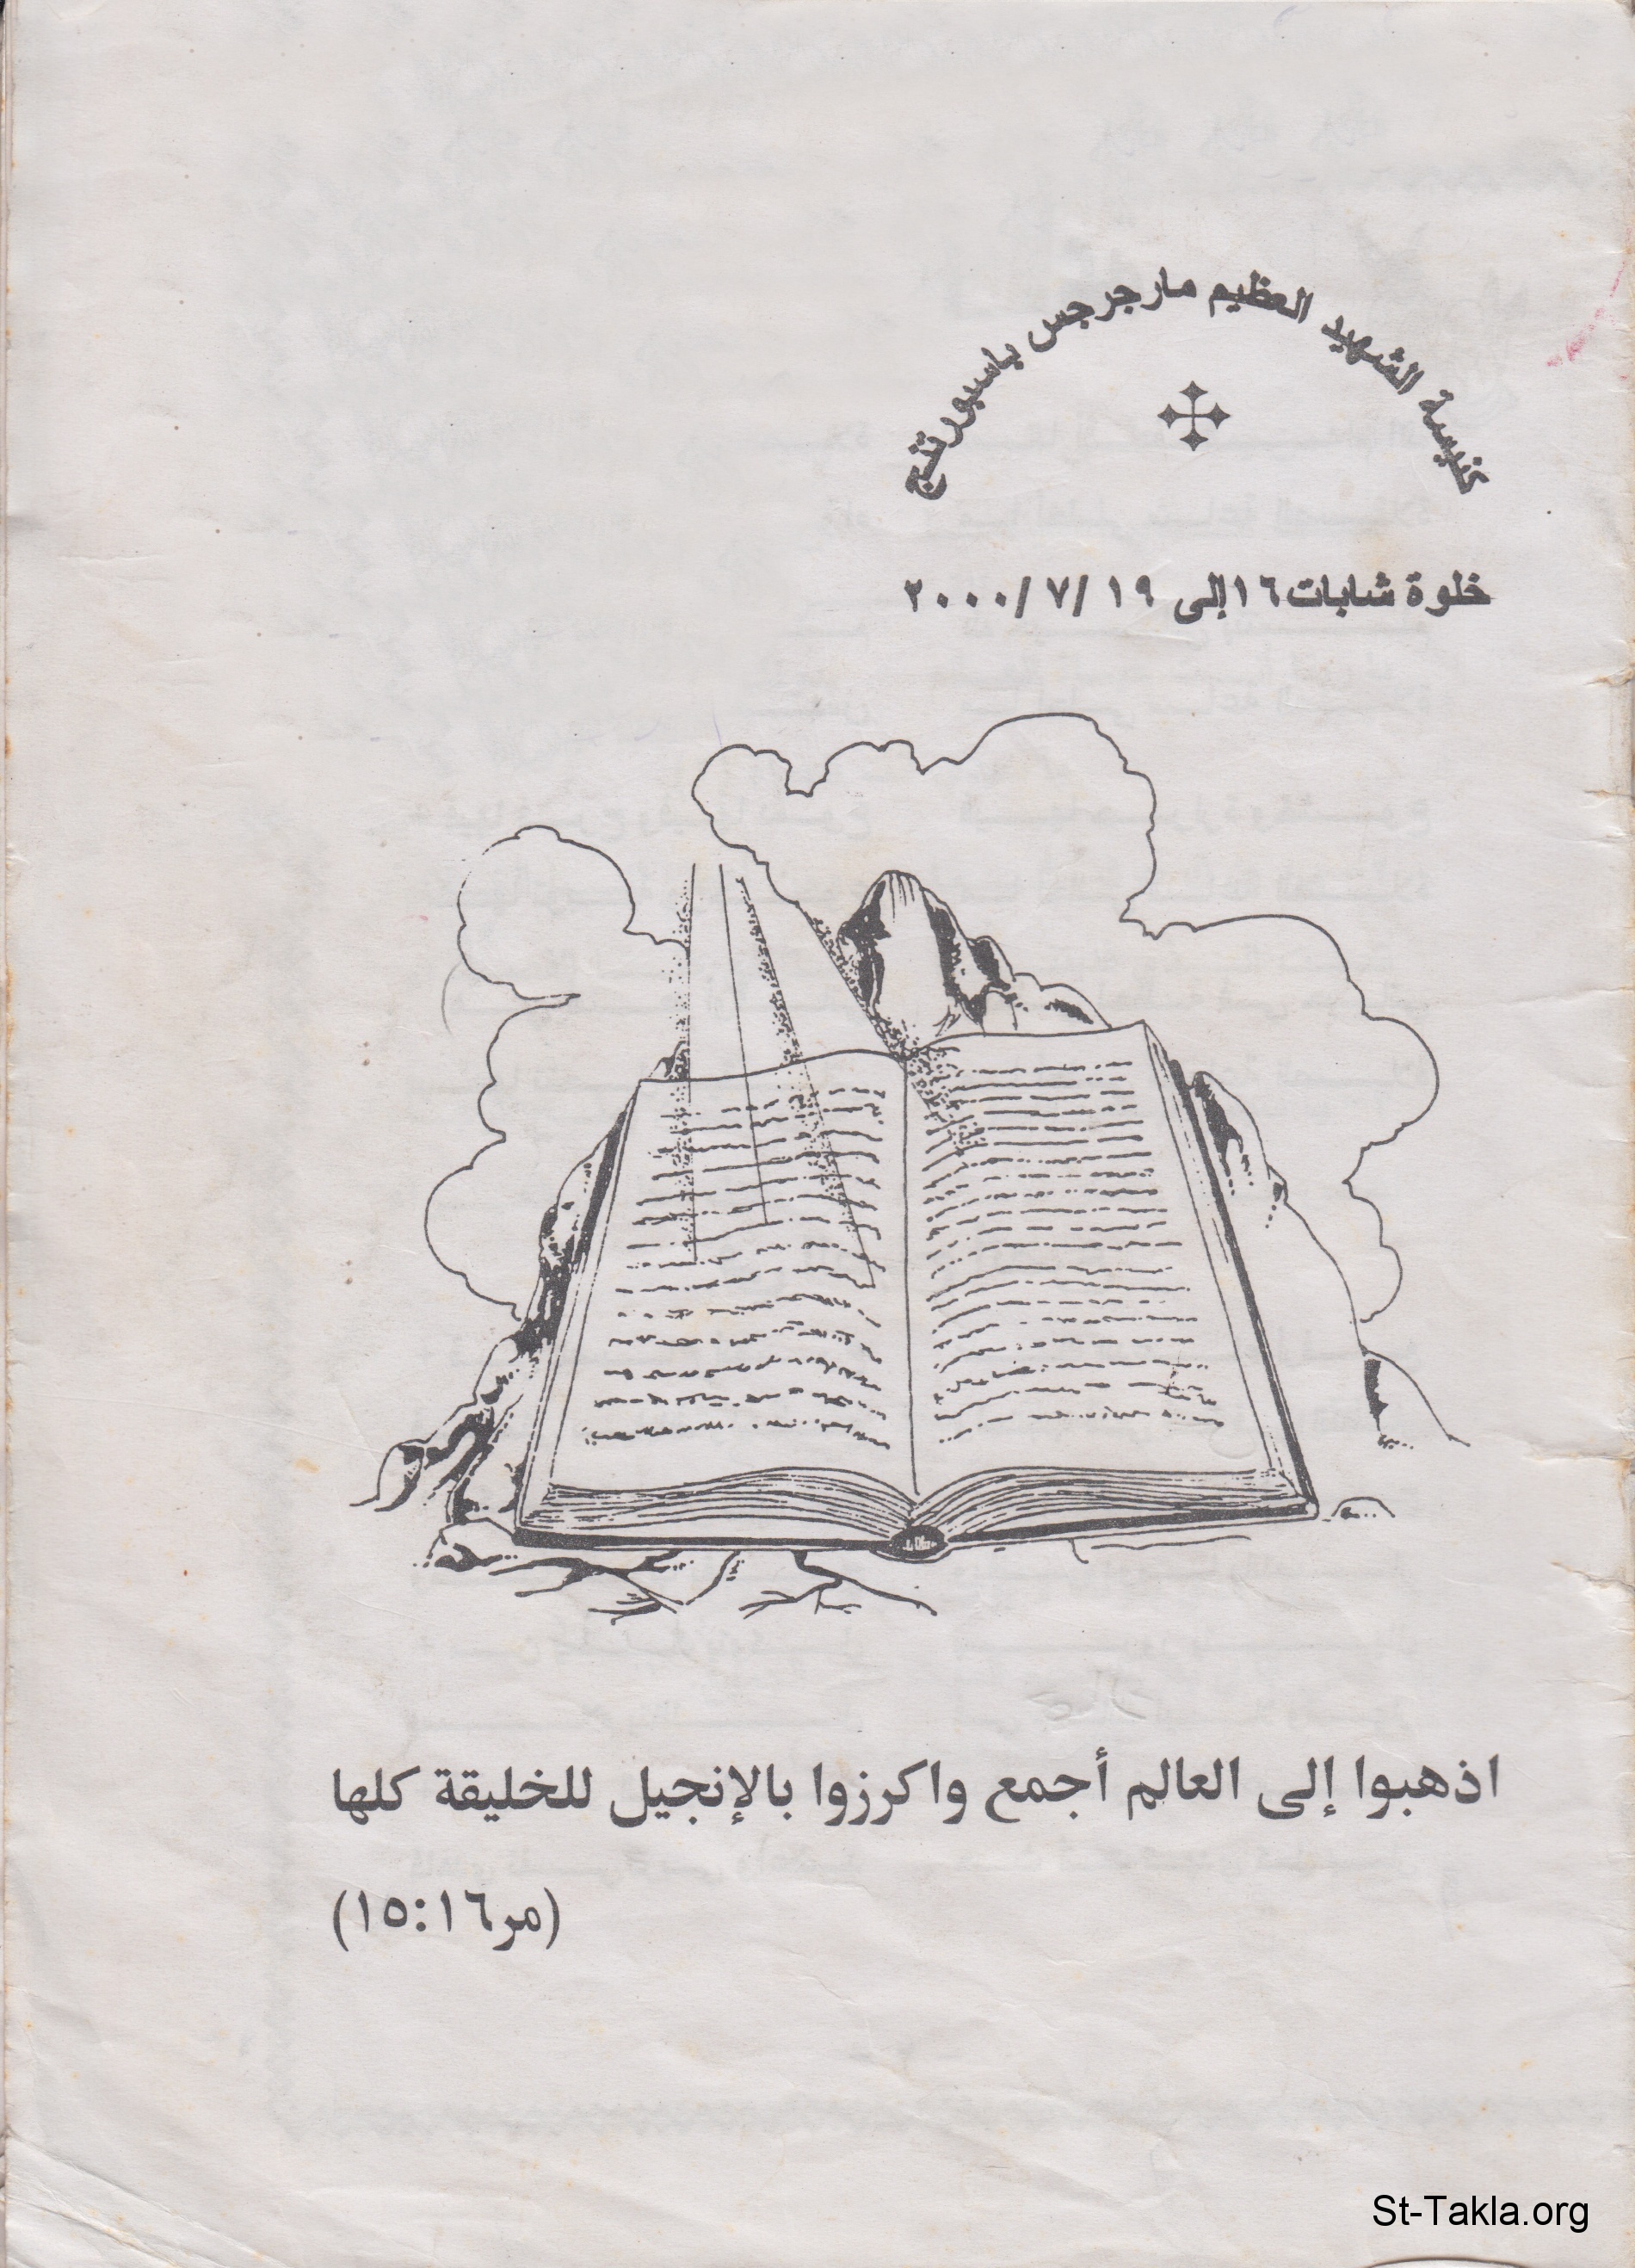 كنيسة الشهيد العظيم مارجرجس باسبورتنج
خلوة شابات ١٦ إلى ١٩ /٧ /٢٠٠٠
اذهبوا إلى العالم أجمع واكرزوا بالإنجيل للخليقة كلها
(مر١٦:١٥)
St-Takla.org